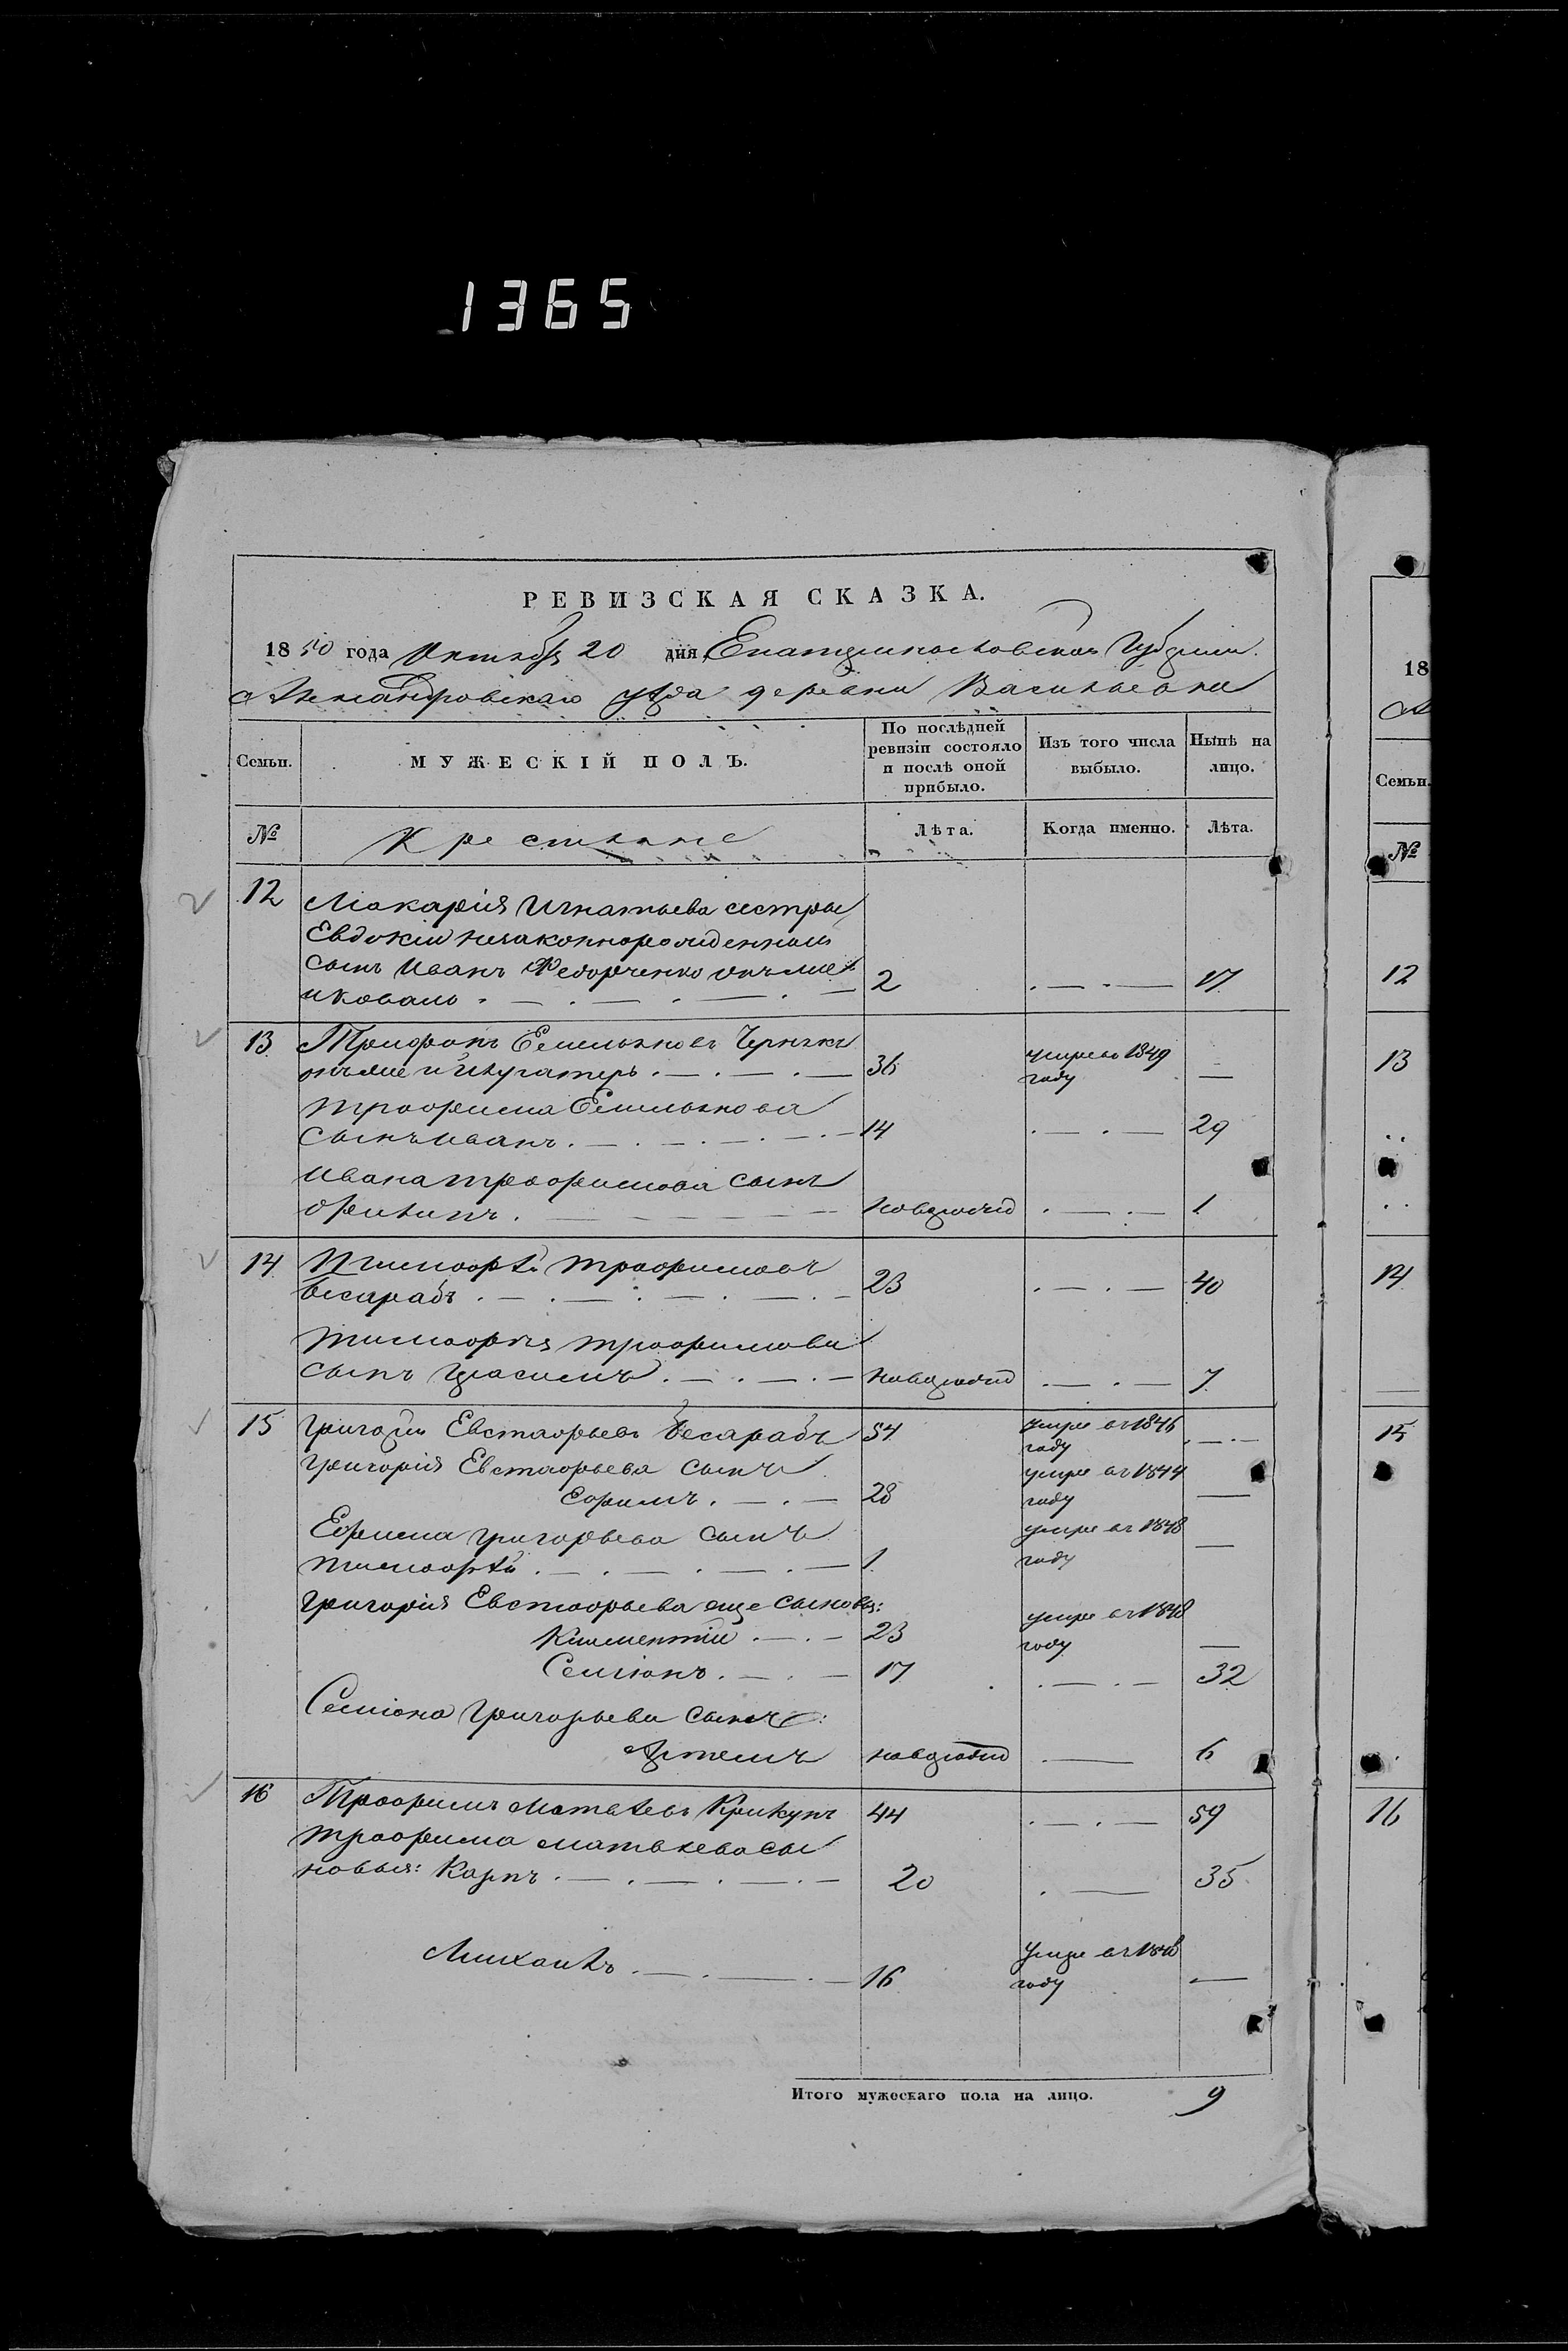 1365
РЕВИЗСКАЯ СКАЗКА.
1850 года Октября 20 дня Екатеринославской Губернии
Александровскаго уѣзда деревни Васильевки
Семьи. МУЖЕСКІЙ ПОЛЪ. По послѣдней ревизіи состояло и послѣ оной прибыло. Изъ того числа выбыло. Нынѣ на лицо.
№ Крестьяне Лѣта. Когда именно. Лѣта.
12 Макарія Игнатьева сестры
Евдокіи незаконнорожденный
сынъ Иванъ Федорченко онъ же
и Коваль 2 17
13 Трифонъ Емельяновъ
онъ же и 36 умре въ 1849 году —
Трофима Емельянова
сынъ Иванъ 14 29
Ивана Трофимова сынъ
Филипъ новорожд 1
14 Тимофѣй Трофимовъ
Бесарабъ 23 40
Тимофѣя Трофимова
сынъ Герасимъ новорожд 7
15 Григорій Евстафьевъ Бесарабъ 54 умре въ 1846 году —
Григорія Евстафьева сынъ
Ефимъ 28 умре въ 1844 году —
Ефима Григорьева сынъ
Тимофѣй 1 умре въ 1848 году —
Григорія Евстафьева еще сыновья:
Климентій 23 умре въ 1848 году —
Семіонъ 17 32
Семіона Григорьева сынъ:
Артемъ новорожд 6
16 Трофимъ Матвѣевъ Крикунъ 44 59
Трофима Матвѣева сы
новья: Карпъ 20 35
Михаилъ 16 умре въ 1848 году —
Итого мужескаго пола на лицо. 9
18
Семьи.
№
12
13
14
15
16